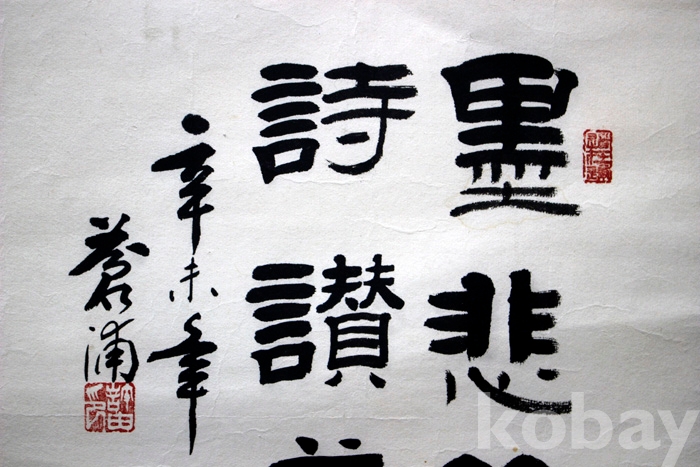 墨悲
詩讚
辛未年
蒼浦
kobay